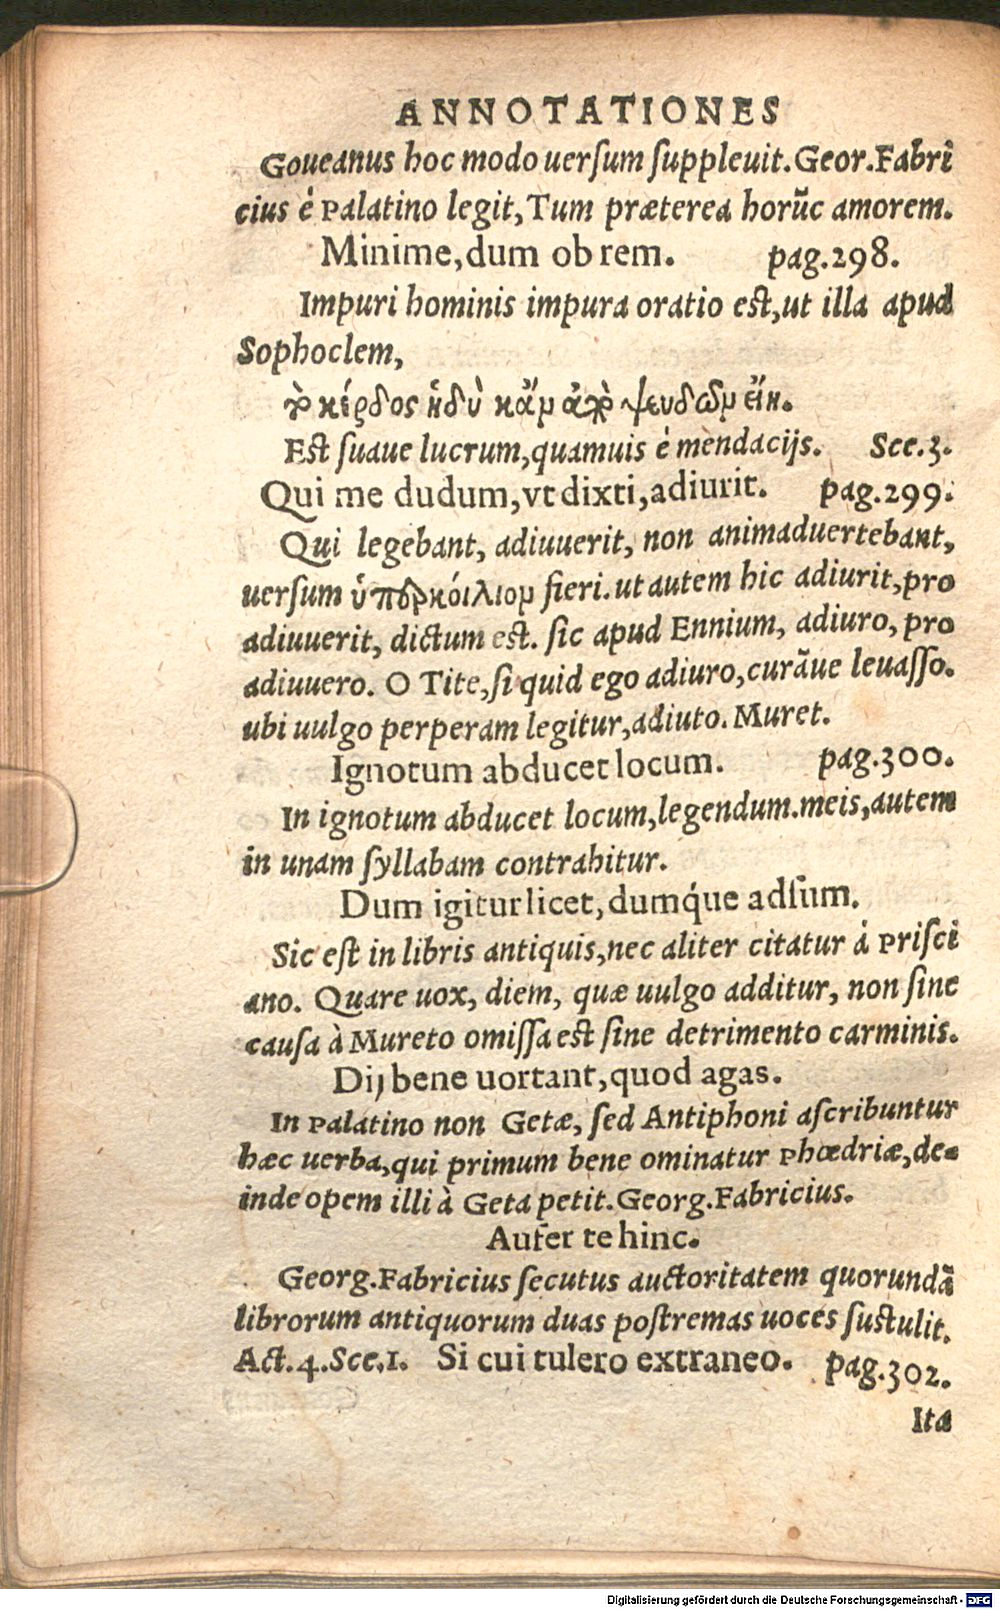 ANNOTATIONES
Goueanus hoc modo uersum suppleuit. Geor. Fabri
cius é Palatino legit, Tum præterea horũc amorem.
Minime, dum ob rem. pag. 298.
Impuri hominis impura oratio est, ut illa apud
Sophoclem,
κέρδος ἡδὺ κἂν ἀπὸ ψευδῶν εἴη.
Est suaue lucrum, quamuis é mendacijs. Sce. 3.
Qui me dudum, vt dixti, adiurit. pag. 299.
Qui legebant, adiuuerit, non animaduertebant,
uersum ὑπερκοίλιον fieri. ut autem hic adiurit, pro
adiuuerit, dictum est. sic apud Ennium, adiuro, pro
adiuuero. O Tite, si quid ego adiuro, curãue leuasso.
ubi uulgo perperam legitur, adiuto. Muret.
Ignotum abducet locum. pag. 300.
In ignotum abducet locum, legendum. meis, autem
in unam syllabam contrahitur.
Dum igitur licet, dumq́ue adsum.
Sic est in libris antiquis, nec aliter citatur á Prisci
ano. Quare uox, diem, quæ uulgo additur, non sine
causa à Mureto omissa est sine detrimento carminis.
Dij bene uortant, quod agas.
In Palatino non Getæ, sed Antiphoni ascribuntur
hæc uerba, qui primum bene ominatur Phœdriæ, de-
inde opem illi à Geta petit. Georg. Fabricius.
Aufer te hinc.
Georg. Fabricius secutus auctoritatem quorundã
librorum antiquorum duas postremas uoces sustulit.
Act. 4. Sce. 1. Si cui tulero extraneo. pag. 302.
Ita
Digitalisierung gefördert durch die Deutsche Forschungsgemeinschaft - DFG